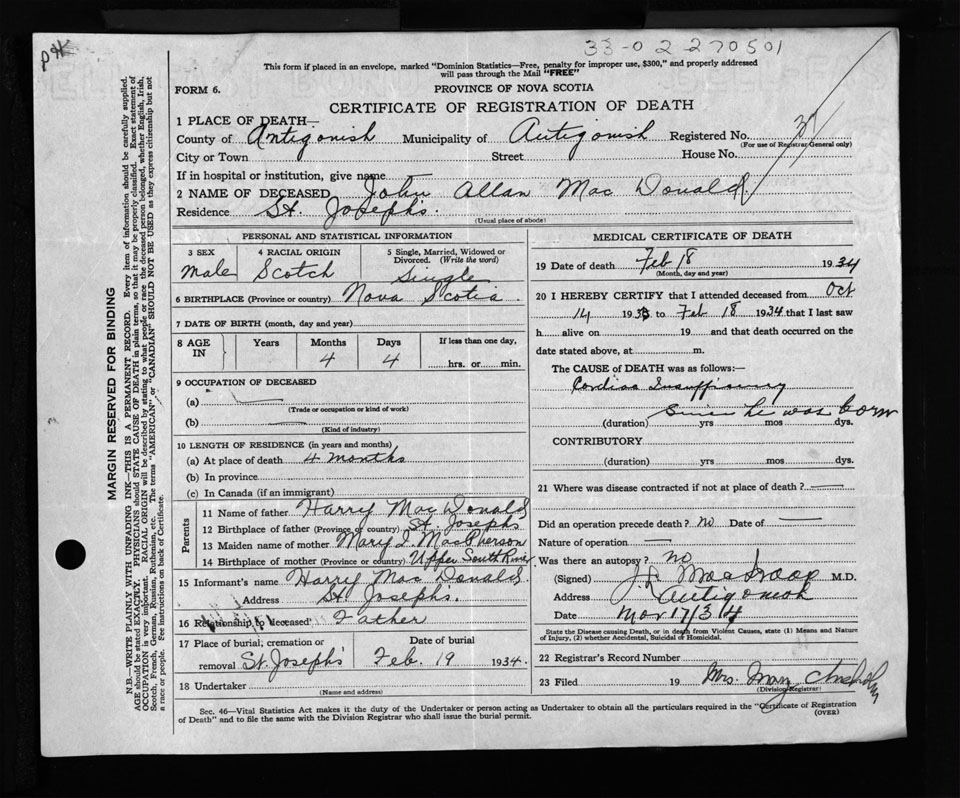 33-02 270501
This form if placed in an envelope, marked "Dominion Statistics—Free, penalty for improper use, $300," and properly addressed
will pass through the Mail "FREE"
FORM 6.
PROVINCE OF NOVA SCOTIA
CERTIFICATE OF REGISTRATION OF DEATH
MARGIN RESERVED FOR BINDING
N.B.—WRITE PLAINLY WITH UNFADING INK—THIS IS A PERMANENT RECORD. Every item of information should be carefully supplied.
AGE should be stated EXACTLY. PHYSICIANS should STATE CAUSE OF DEATH in plain terms, so that it may be properly classified. Exact statement of
OCCUPATION is very important. RACIAL ORIGIN will be described by stating to what people or race the deceased person belonged, whether English, Irish,
Scotch, French, German, Russian, Ruthenian, etc. The terms "AMERICAN" or "CANADIAN" SHOULD NOT BE USED as they express citizenship but not
a race or people. Fee instructions on back of Certificate.
1 PLACE OF DEATH—
County of Antigonish Municipality of Antigonish Registered No. 37
(For use of Registrar General only)
City or Town Street House No.
If in hospital or institution, give name
2 NAME OF DECEASED John Allan Mac Donald
Residence St. Joseph's.
(Usual place of abode)
PERSONAL AND STATISTICAL INFORMATION
3 SEX 4 RACIAL ORIGIN 5 Single, Married, Widowed or
Divorced. (Write the word)
Male Scotch Single
6 BIRTHPLACE (Province or country) Nova Scotia.
7 DATE OF BIRTH (month, day and year)
8 AGE IN Years Months Days If less than one day,
4 4 hrs. or min.
9 OCCUPATION OF DECEASED
(a)
(Trade or occupation or kind of work)
(b)
(Kind of industry)
10 LENGTH OF RESIDENCE (in years and months)
(a) At place of death 4 months
(b) In province
(c) In Canada (if an immigrant)
Parents
11 Name of father Harry Mac Donald
12 Birthplace of father (Province or country) St. Josephs
13 Maiden name of mother Mary I. MacPherson
14 Birthplace of mother (Province or country) Upper South River
15 Informant's name Harry Mac Donald
Address St. Joseph's.
16 Relationship to deceased Father
17 Place of burial, cremation or Date of burial
removal St. Josephs' Feb. 19 1934.
18 Undertaker
(Name and address)
MEDICAL CERTIFICATE OF DEATH
19 Date of death Feb 18 1934
(Month, day and year)
20 I HEREBY CERTIFY that I attended deceased from Oct
14 1933 to Feb 18 1934 that I last saw
h alive on 19 and that death occurred on the
date stated above, at m.
The CAUSE of DEATH was as follows:—
Cardiac Insufficiency
since he was born
(duration) yrs mos dys.
CONTRIBUTORY
(duration) yrs mos dys.
21 Where was disease contracted if not at place of death?
Did an operation precede death? no Date of
Nature of operation
Was there an autopsy? no
(Signed) M.D.
Address Antigonish
Date Mar 17/34
State the Disease causing Death, or in death from Violent Causes, state (1) Means and Nature
of Injury, (2) whether Accidental, Suicidal or Homicidal.
22 Registrar's Record Number
23 Filed 19 Mrs. Mary Chisholm
(Division Registrar)
Sec. 46—Vital Statistics Act makes it the duty of the Undertaker or person acting as Undertaker to obtain all the particulars required in the "Certificate of Registration
of Death" and to file the same with the Division Registrar who shall issue the burial permit.
(OVER)